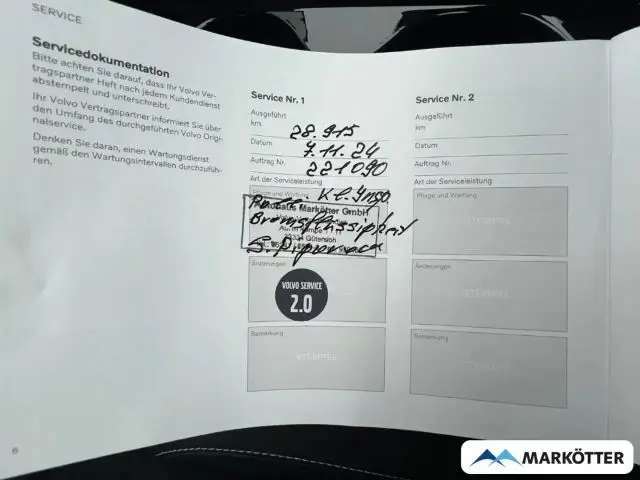 SERVICE
Servicedokumentation
Bitte achten Sie darauf, dass Ihr Volvo Ver-
tragspartner Heft nach jedem Kundendienst
abstempelt und unterschreibt.
Ihr Volvo Vertragspartner informiert Sie über
den Umfang des durchgeführten Volvo Origi-
nalservice.
Denken Sie daran, einen Wartungsdienst
gemäß den Wartungsintervallen durchzufüh-
ren.
Service Nr. 1
Ausgeführt
km.
28.915
Datum
7.11.24
Auftrag Nr.
221090
Art der Serviceleistung
Pflege und Wartung
Kl. Insp.
Autohaus Markötter GmbH
Gütersloh
Änderungen
VOLVO SERVICE
2.0
Bemerkung
STEMPEL
Service Nr. 2
Ausgeführt
km.
Datum
Auftrag Nr.
Art der Serviceleistung
Pflege und Wartung
STEMPEL
Änderungen
STEMPEL
Bemerkung
STEMPEL
6
MARKÖTTER